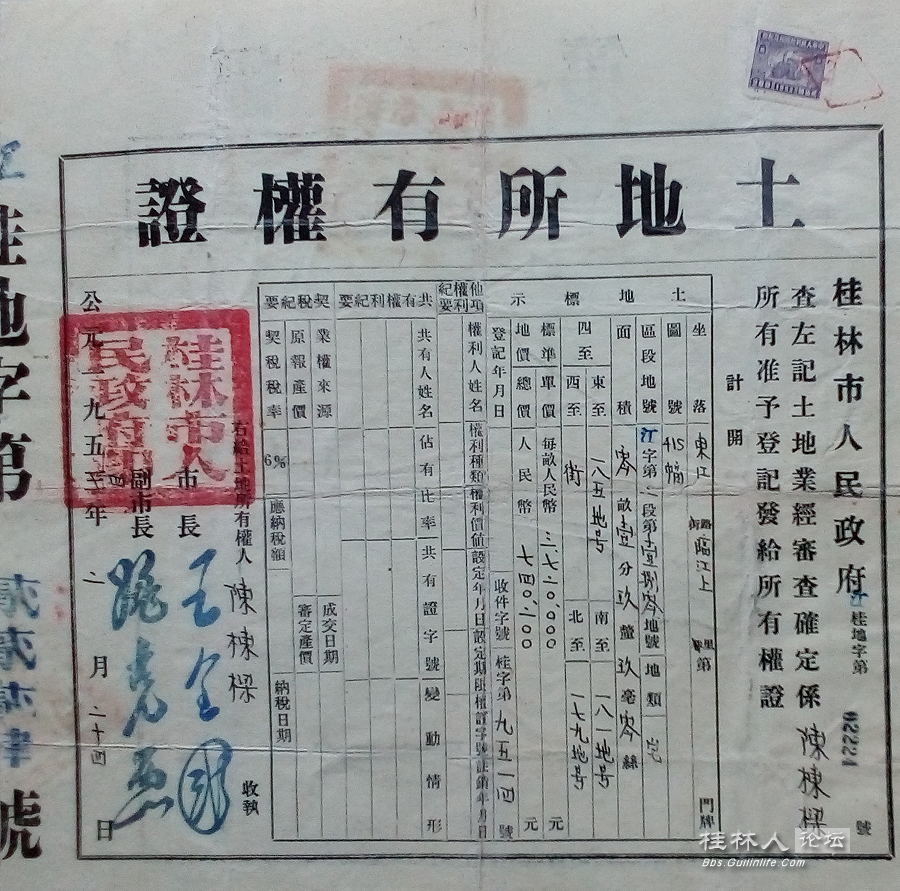 土地所有權證
桂林市人民政府
江桂地字第 02224 號
查左記土地業經審查確定係 陳棟樑
所有准予登記發給所有權證
計開
土地標示
坐落 東江 街路 臨江上 里 第 門牌
圖號 415幅
區段地號 江字第 二 段第 壹捌零 地號 地類 宅
面積 零畝壹分玖釐玖毫零絲
四至 東至 一八五地号 南至 一八一地号
西至 街 北至 一七九地号
標準地價 單價 每畝人民幣 三.七二〇.〇〇〇 元
總價 人民幣 七四〇.二〇〇 元
登記年月日 收件字號 桂字第 九五一四 號
他項權利紀要
權利人姓名 權利種類 權利價值 設定年月日 設定期限 權證字號 註銷年月日
共有權利紀要
共有人姓名 佔有比率 共有證字號 變動情形
契稅紀要
業權來源 成交日期
原報產價 審定產價
契稅稅率 6% 應納稅額 納稅日期
右給土地所有權人 陳棟樑 收執
市長
副市長
公元一九五三年二月二十四日
桂林市人民政府印
桂地字第 貳貳貳肆 號
桂林人论坛
Bbs.Guilinlife.Com